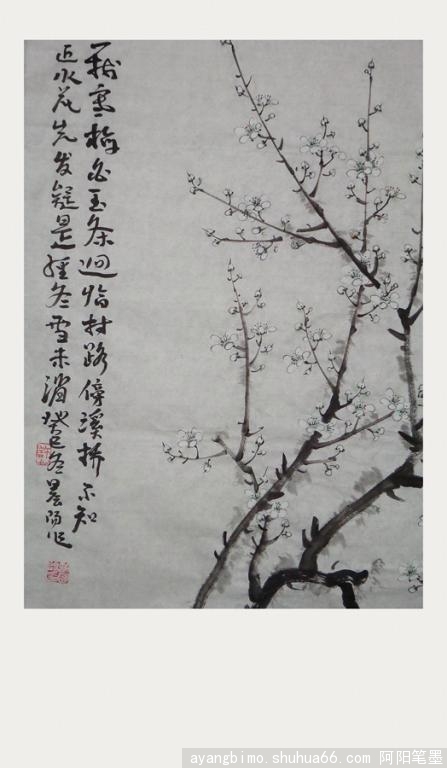 一树寒梅白玉条迥临村路傍溪桥不知
近水花先发疑是经冬雪未消癸巳冬晨阳作
ayangbimo.shuhua66.com 阿阳笔墨